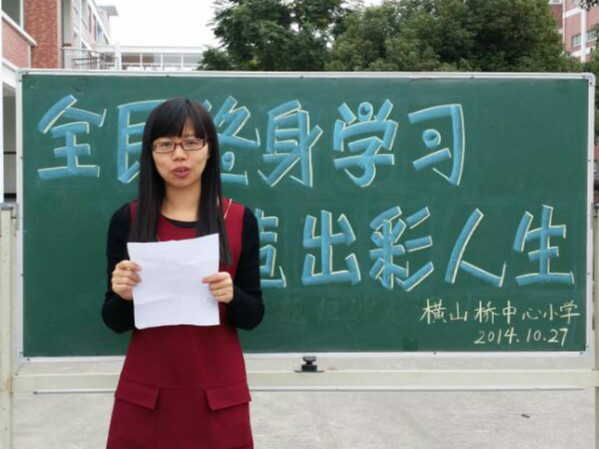 全民终身学习
造出彩人生
横山桥中心小学
2014.10.27